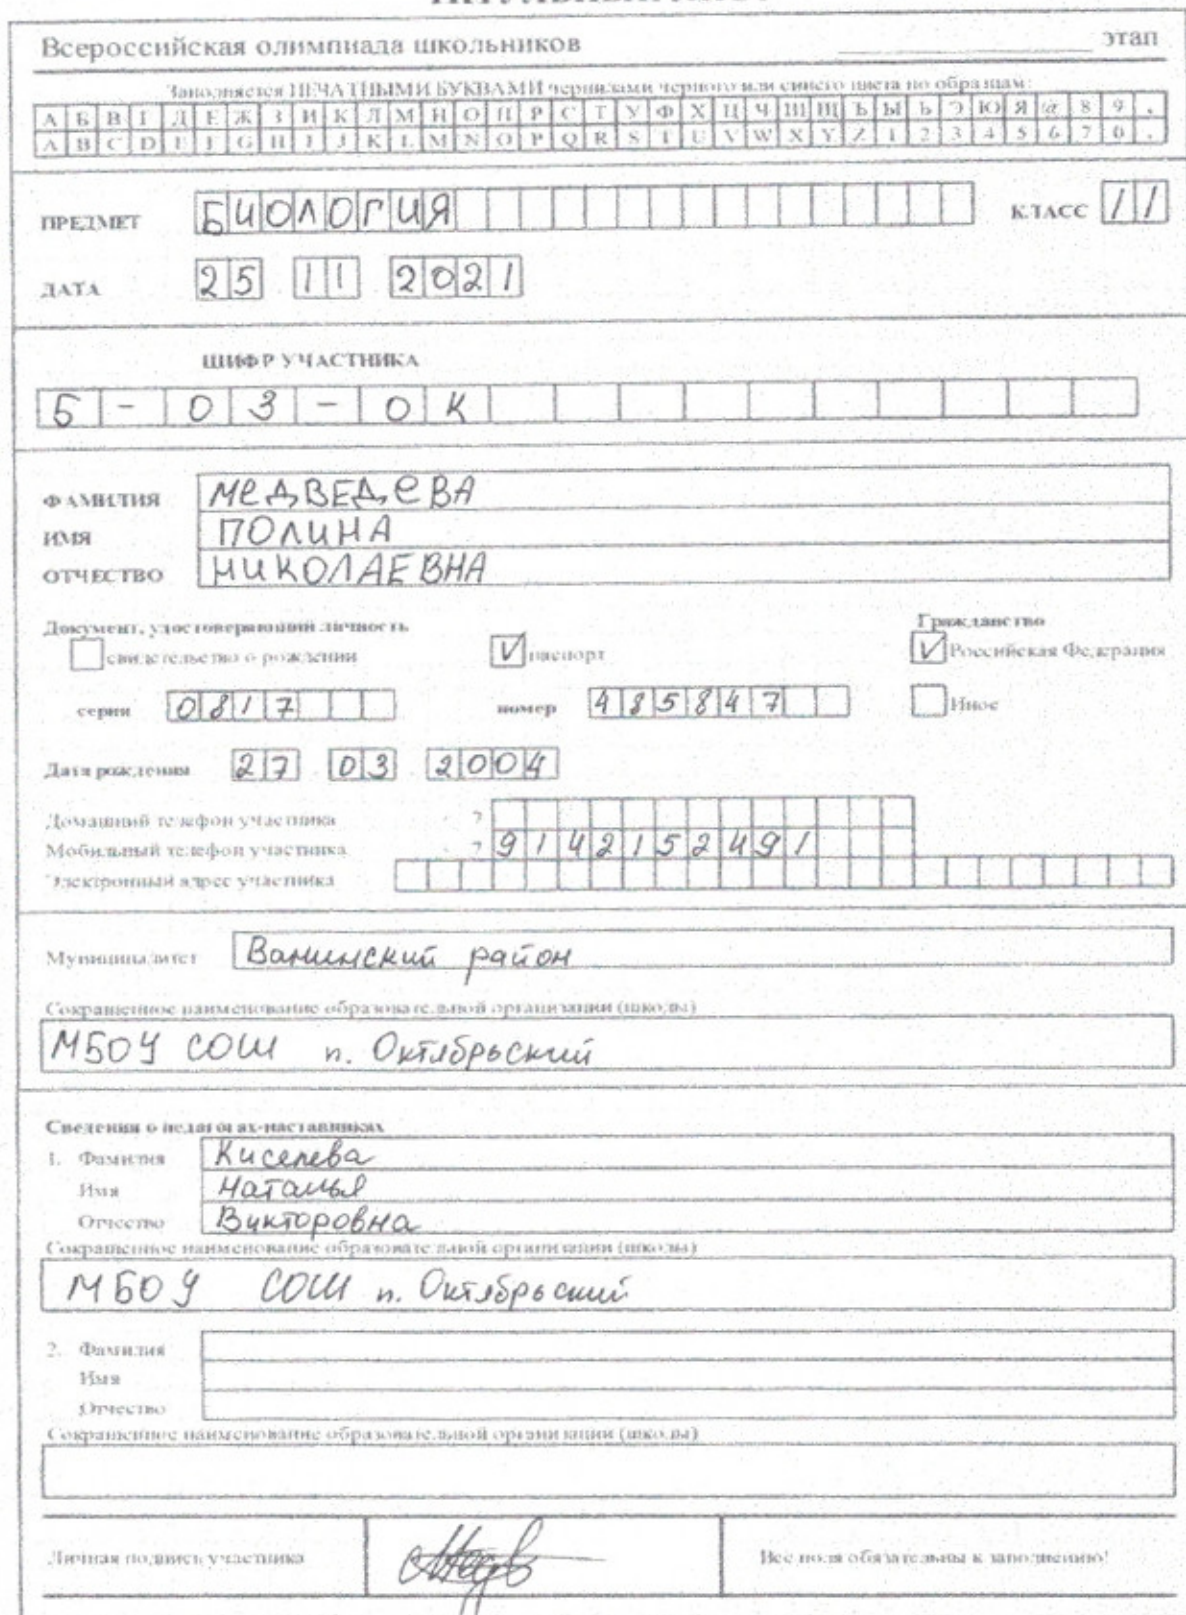 Всероссийская олимпиада школьников ____________ этап
Заполняется ПЕЧАТНЫМИ БУКВАМИ чернилами черного или синего цвета по образцам:
А Б В Г Д Е Ж З И К Л М Н О П Р С Т У Ф Х Ц Ч Ш Щ Ъ Ы Ь Э Ю Я @ 8 9 ,
A B C D E F G H I J K L M N O P Q R S T U V W X Y Z 1 2 3 4 5 6 7 0 .
ПРЕДМЕТ БИОЛОГИЯ КЛАСС 11
ДАТА 25 11 2021
ШИФР УЧАСТНИКА
Б - 03 - ОК
ФАМИЛИЯ МЕДВЕДЕВА
ИМЯ ПОЛИНА
ОТЧЕСТВО НИКОЛАЕВНА
Документ, удостоверяющий личность Гражданство
свидетельство о рождении V паспорт V Российская Федерация
серия 0817 номер 485847 Иное
Дата рождения 27 03 2004
Домашний телефон участника 7
Мобильный телефон участника 7 9142152491
Электронный адрес участника
Муниципалитет Ванинский район
Сокращенное наименование образовательной организации (школы)
МБОУ СОШ п. Октябрьский
Сведения о педагогах-наставниках
1. Фамилия Киселева
Имя Наталья
Отчество Викторовна
Сокращенное наименование образовательной организации (школы)
МБОУ СОШ п. Октябрьский
2. Фамилия
Имя
Отчество
Сокращенное наименование образовательной организации (школы)
Личная подпись участника Все поля обязательны к заполнению!